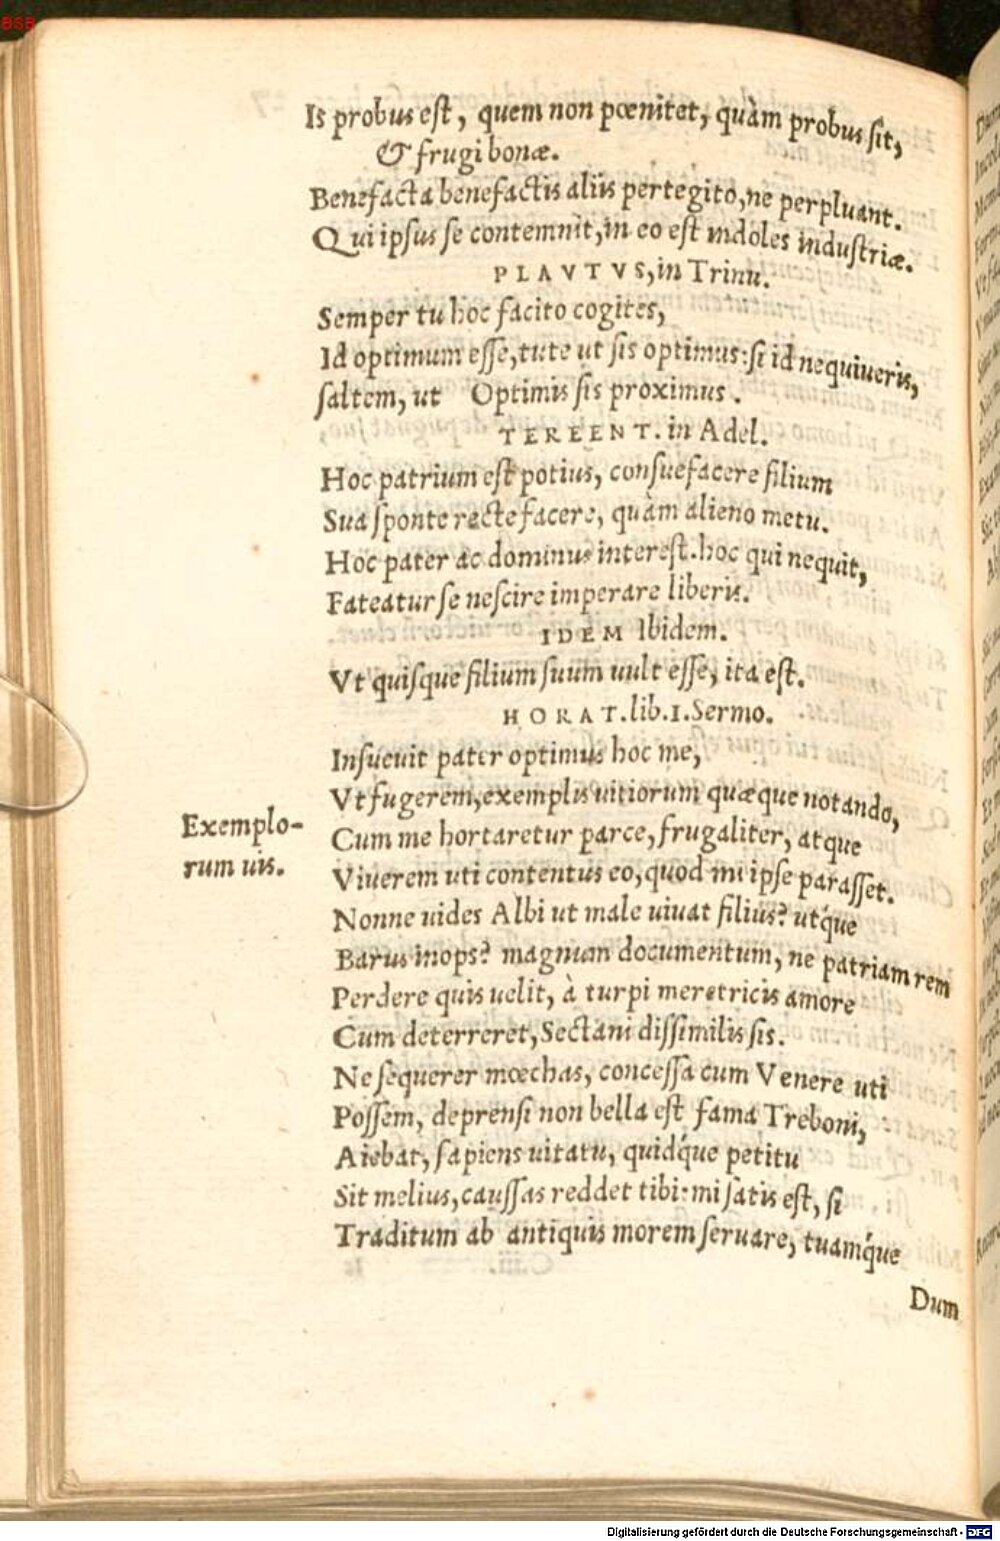 BSB
Is probus est, quem non pœnitet, quàm probus sit,
& frugi bonæ.
Benefacta benefactis aliis pertegito, ne perpluant.
Qui ipsus se contemnit, in eo est indoles industriæ.
PLAVTVS, in Trinu.
Semper tu hoc facito cogites,
Id optimum esse, tute ut sis optimus: si id nequiueris,
saltem, ut Optimis sis proximus.
TEREENT. in Adel.
Hoc patrium est potius, consuefacere filium
Sua sponte recte facere, quàm alieno metu.
Hoc pater ac dominus interest. hoc qui nequit,
Fateatur se nescire imperare liberis.
IDEM Ibidem.
Vt quisque filium suum uult esse, ita est.
HORAT. lib. 1. Sermo.
Insueuit pater optimus hoc me,
Vt fugerem, exemplis uitiorum quæque notando,
Exemplo-
rum uis.
Cum me hortaretur parce, frugaliter, atque
Viuerem uti contentus eo, quod mi ipse parasset.
Nonne uides Albi ut male uiuat filius? ut'que
Barus inops? magnum documentum, ne patriam rem
Perdere quis uelit, à turpi meretricis amore
Cum deterreret, Sectani dissimilis sis.
Ne sequerer mœchas, concessa cum Venere uti
Possem, deprensi non bella est fama Treboni,
Aiebat, sapiens uitatu, quid'que petitu
Sit melius, caussas reddet tibi: mi satis est, si
Traditum ab antiquis morem seruare, tuam'que
Dum
Digitalisierung gefördert durch die Deutsche Forschungsgemeinschaft - DFG